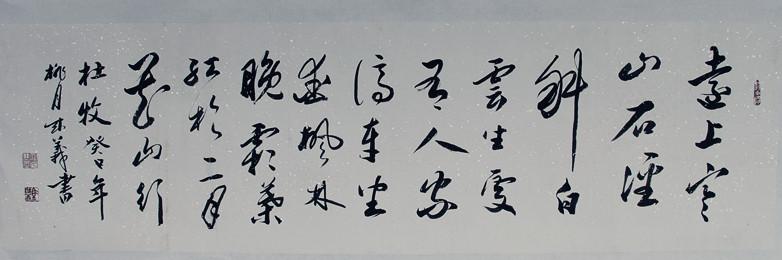 遠上寒
山石徑
斜白
雲生處
有人家
停車坐
愛楓林
晚霜葉
紅於二月
花山行
杜牧癸巳年
桃月義書